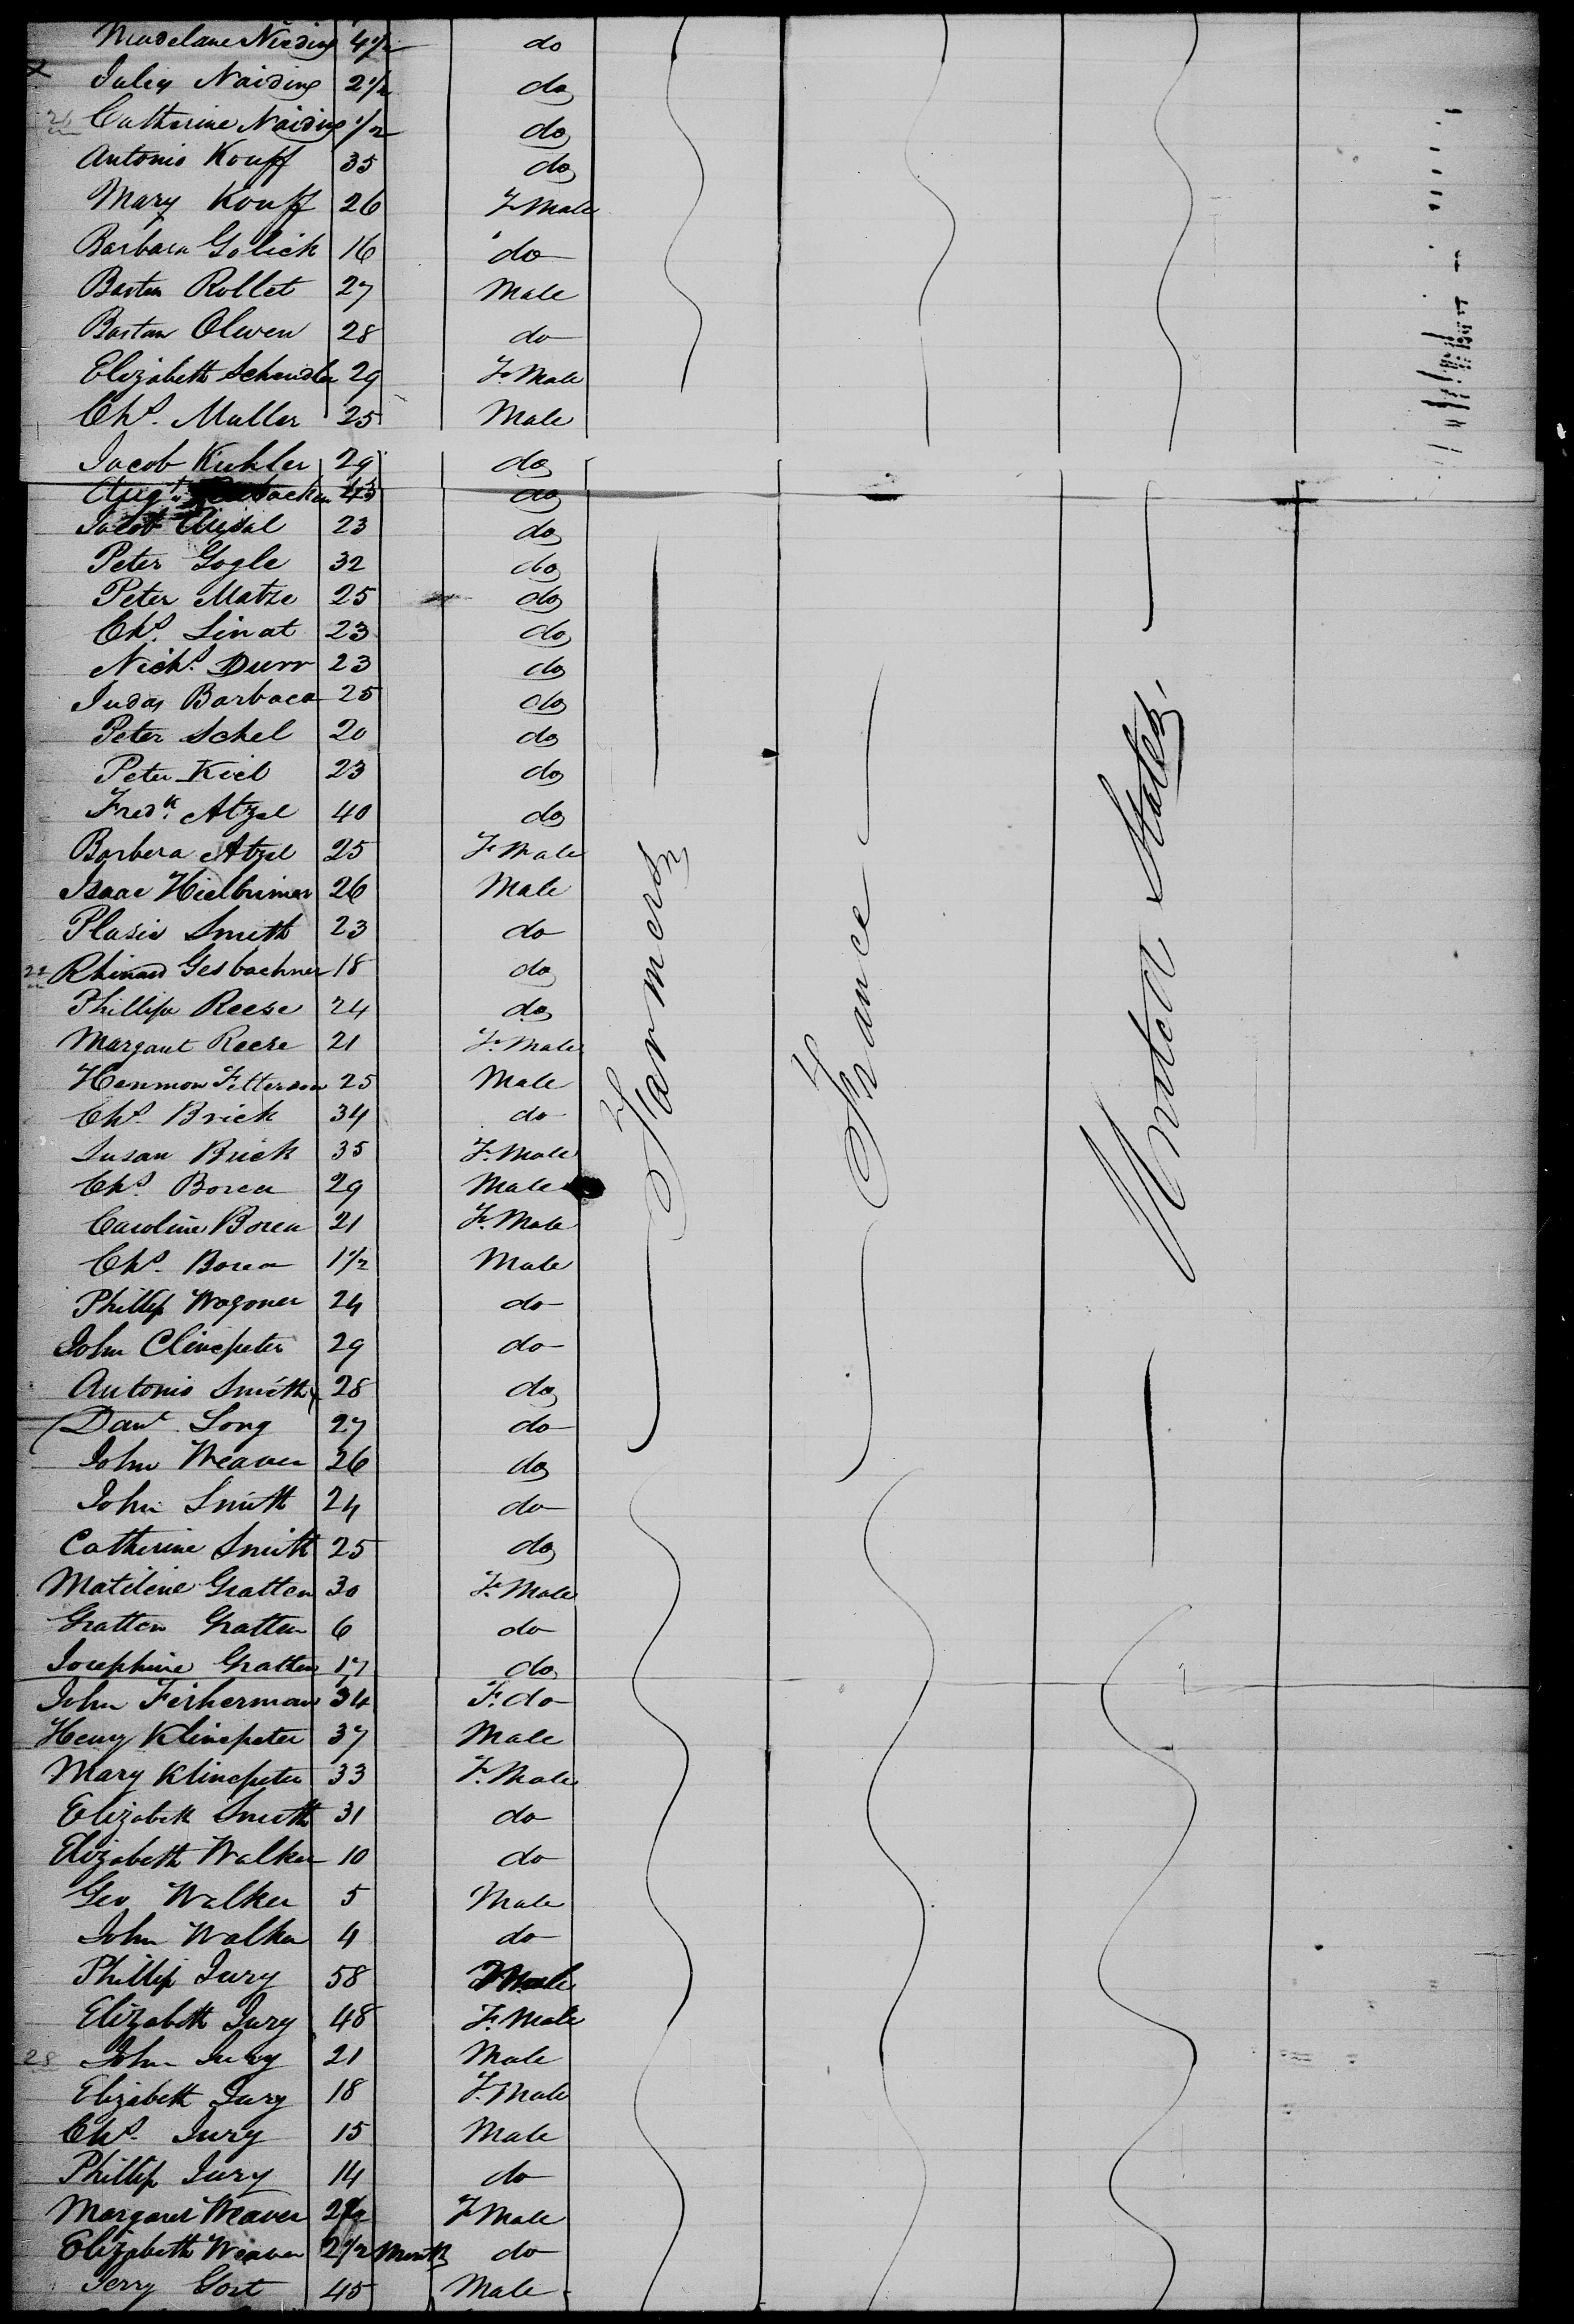 Madelane Naiding 4 1/2 do
Julia Naiding 2 1/2 do
26 Catherine Naiding 1/2 do
Antonio Kouff 35 do
Mary Kouff 26 F Male
Barbara Golich 16 do
Basten Rollet 27 Male
Bastan Olwen 28 do
Elizabeth Schendler 29 F. Male
Chs. Muller 25 Male
Jacob Kuhler 29 do
Augt. 43 do
Jacob 23 do
Peter Gogle 32 do
Peter Matze 25 do
Chs. Linat 23 do
Nichs. Durr 23 do
Judas Barbaca 25 do
Peter Schel 20 do
Peter Kiel 23 do
Fredk. Atzel 40 do
Barbera Atzel 25 F Male
Isaac Hielbrimer 26 Male
Plasie Smith 23 do
Rhinard Gesbachner 18 do
Phillip Reese 24 do
Margaret Reese 21 F. Male
Hanmon Fetterson 25 Male
Chs. Brick 34 do
Susan Brick 35 F. Male
Chs. Borea 29 Male
Caroline Borea 21 F. Male
Chs. Borea 1 1/2 Male
Phillip Wagoner 24 do
John Clinepeter 29 do
Antonio Smith 28 do
Danl. Long 27 do
John Weaver 26 do
John Smith 24 do
Catherine Smith 25 do
Matilene Gratten 30 F. Male
Gratten Gratten 6 do
Josephine Gratten 17 do
John Fisherman 34 F. do
Henry Klinepeter 37 Male
Mary Klinepeter 33 F. Male
Elizabeth Smith 31 do
Elizabeth Walker 10 do
Geo Walker 5 Male
John Walker 4 do
Phillip Jury 58 Male
Elizabeth Jury 48 F. Male
28 John Jury 21 Male
Elizabeth Jury 18 F. Male
Chs. Jury 15 Male
Phillip Jury 14 do
Margaret Weaver F Male
Elizabeth Weaver 2 1/2 Month do
Jerry Gost 45 Male
Farmers
France
United States